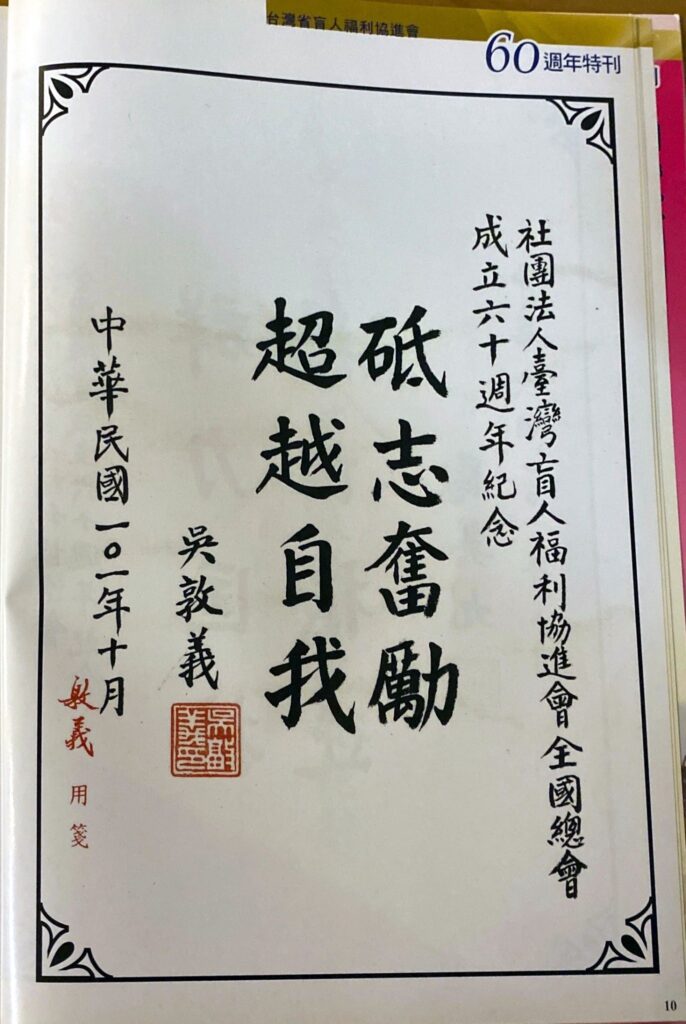 台灣省盲人福利協進會
60週年特刊
社團法人臺灣盲人福利協進會全國總會
成立六十週年紀念
砥志奮勵
超越自我
吳敦義
吳敦義印
中華民國一〇一年十月
敦義用箋
10